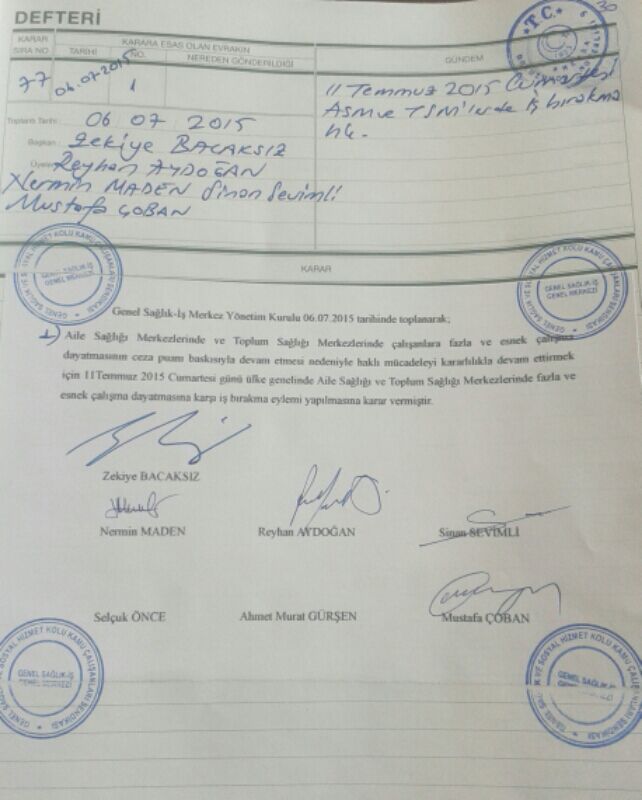 DEFTERİ
30
T.C.
KARAR
SIRA NO
KARARA ESAS OLAN EVRAKIN
TARİHİ
NO.
NEREDEN GÖNDERİLDİĞİ
GÜNDEM
77
06.07.2015
1
11 Temmuz 2015 Cumartesi
ASM ve TSM'lerde iş bırakma
hk.
Toplantı Tarihi: 06 07 2015
Başkan: Zekiye BACAKSIZ
Üyeler Reyhan AYDOĞAN
Nermin MADEN Sinan Sevimli
Mustafa ÇOBAN
KARAR
GENEL SAĞLIK-İŞ
GENEL MERKEZİ
GENEL SAĞLIK-İŞ
GENEL MERKEZİ
Genel Sağlık-İş Merkez Yönetim Kurulu 06.07.2015 tarihinde toplanarak;
1) Aile Sağlığı Merkezlerinde ve Toplum Sağlığı Merkezlerinde çalışanlara fazla ve esnek çalışma
dayatmasının ceza puanı baskısıyla devam etmesi nedeniyle haklı mücadeleyi kararlılıkla devam ettirmek
için 11Temmuz 2015 Cumartesi günü ülke genelinde Aile Sağlığı ve Toplum Sağlığı Merkezlerinde fazla ve
esnek çalışma dayatmasına karşı iş bırakma eylemi yapılmasına karar vermiştir.
Zekiye BACAKSIZ
Nermin MADEN
Reyhan AYDOĞAN
Sinan SEVİMLİ
Selçuk ÖNCE
Ahmet Murat GÜRŞEN
Mustafa ÇOBAN
GENEL SAĞLIK-İŞ
GENEL MERKEZİ
GENEL SAĞLIK-İŞ